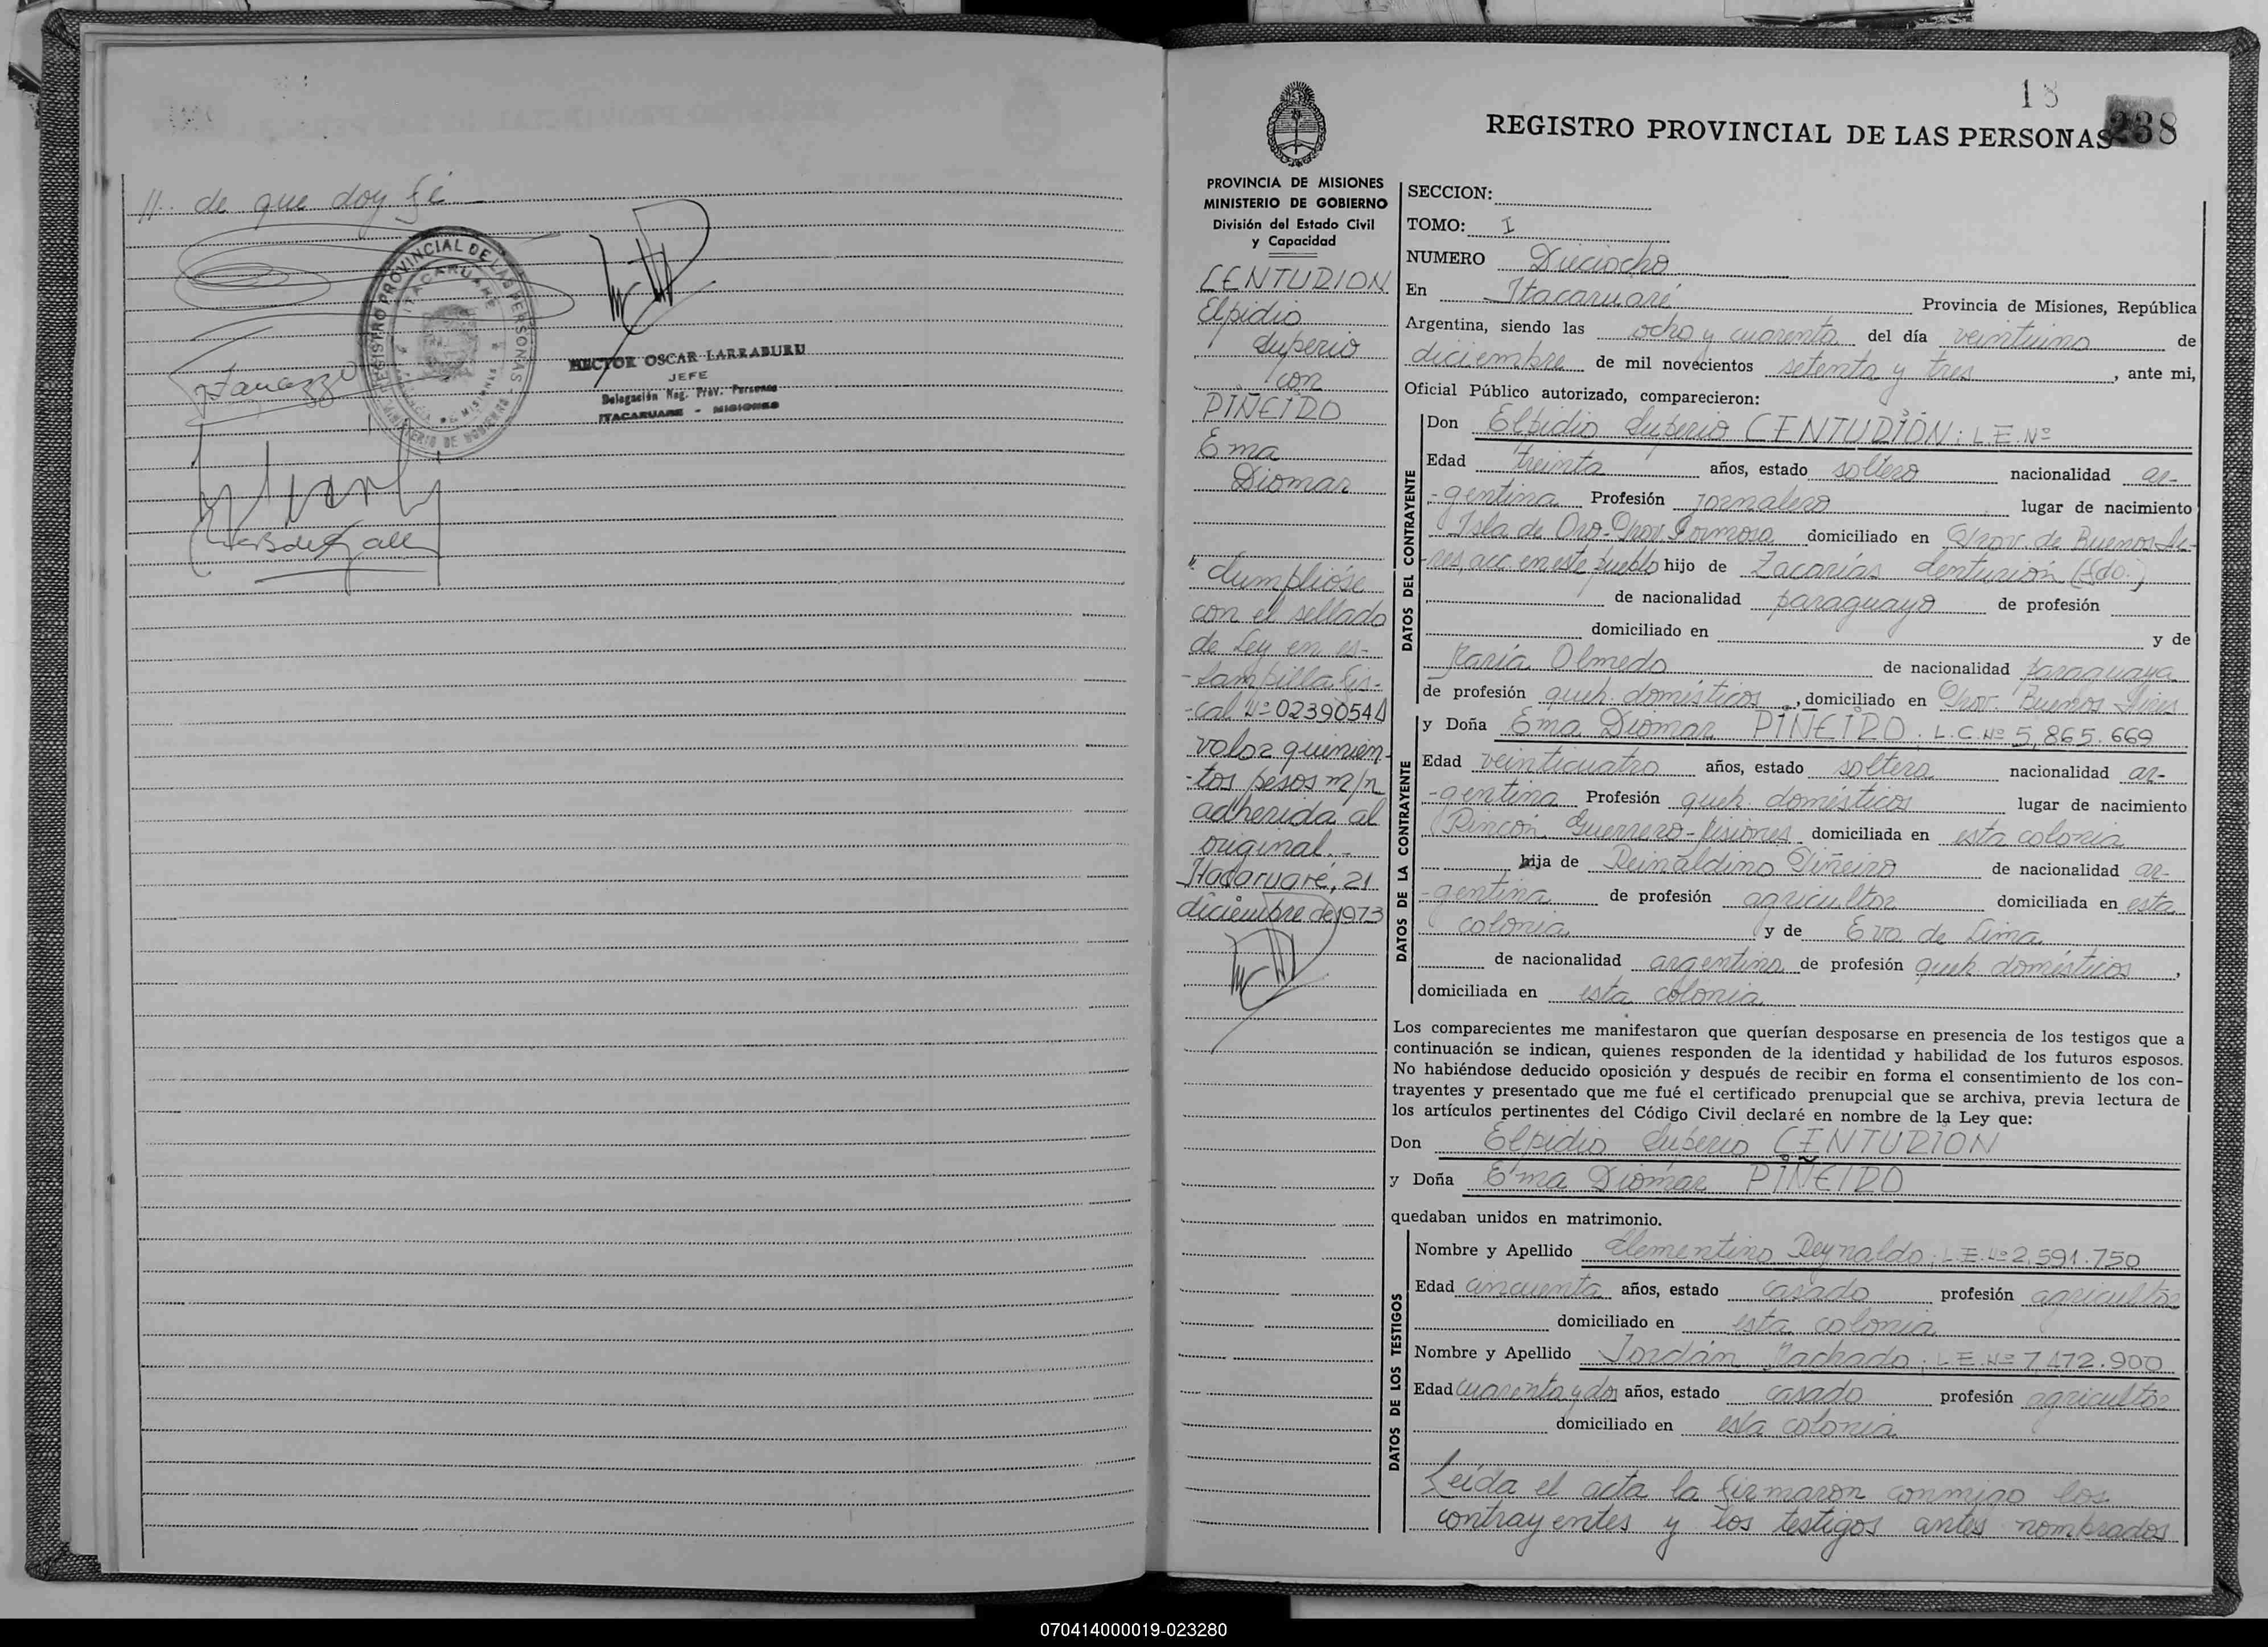 //. de que doy fé
REGISTRO PROVINCIAL DE LAS PERSONAS
ITACARUARE
MINISTERIO DE GOBIERNO
HECTOR OSCAR LARRABURU
JEFE
Delegación Reg. Prov. Personas
ITACARUARE - MISIONES
18
238
REGISTRO PROVINCIAL DE LAS PERSONAS
PROVINCIA DE MISIONES
MINISTERIO DE GOBIERNO
División del Estado Civil
y Capacidad
CENTURION
Elpidio
Luperio
con
PIÑEIRO
Ema
Diomar
"Cumplióse
con el sellado
de Ley en es-
-tampilla fis-
-cal Nº 0239054
valor quinien-
-tos pesos m/n
adherida al
original.-
Itacaruaré, 21
diciembre de 1973
SECCION:
TOMO: I
NUMERO Dieciocho
En Itacaruaré Provincia de Misiones, República
Argentina, siendo las ocho y cuarenta del día veintiuno de
diciembre de mil novecientos setenta y tres, ante mi,
Oficial Público autorizado, comparecieron:
DATOS DEL CONTRAYENTE
Don Elpidio Luperio CENTURIÓN: L.E. Nº
Edad treinta años, estado soltero nacionalidad ar-
-gentina Profesión jornalero lugar de nacimiento
Isla de Oro-Prov. Formosa domiciliado en Prov. de Buenos Ai-
-res, acc. en este pueblo hijo de Zacarías Centurión (fdo.)
de nacionalidad paraguayo de profesión
domiciliado en y de
María Olmedo de nacionalidad paraguaya
de profesión queh. domésticos, domiciliado en Prov. Buenos Aires
DATOS DE LA CONTRAYENTE
y Doña Ema Diomar PIÑEIRO. L.C. Nº 5.865.669
Edad veinticuatro años, estado soltera nacionalidad ar-
-gentina Profesión queh. domésticos lugar de nacimiento
Rincón Guerrero-Misiones domiciliada en esta colonia
hija de Reinaldino Piñeiro de nacionalidad ar-
-gentina de profesión agricultor domiciliada en esta
colonia y de Eva de Lima
de nacionalidad argentina de profesión queh. domésticos,
domiciliada en esta colonia
Los comparecientes me manifestaron que querían desposarse en presencia de los testigos que a
continuación se indican, quienes responden de la identidad y habilidad de los futuros esposos.
No habiéndose deducido oposición y después de recibir en forma el consentimiento de los con-
trayentes y presentado que me fué el certificado prenupcial que se archiva, previa lectura de
los artículos pertinentes del Código Civil declaré en nombre de la Ley que:
Don Elpidio Luperio CENTURION
y Doña Ema Diomar PIÑEIRO
quedaban unidos en matrimonio.
DATOS DE LOS TESTIGOS
Nombre y Apellido Clementino Reynaldo; L.E. Nº 2.591.750
Edad cincuenta años, estado casado profesión agricultor
domiciliado en esta colonia
Nombre y Apellido Jordán Machado; L.E. Nº 7.472.900
Edad cuarenta y dos años, estado casado profesión agricultor
domiciliado en esta colonia
Leída el acta la firmaron conmigo los
contrayentes y los testigos antes nombrados
070414000019-023280